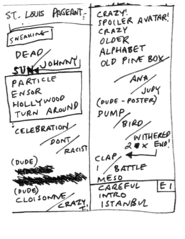 ST. LOUIS PAGEANT:
SNEAKING
DEAD/
SUN JOHNNY
PARTICLE
ENSOR
HOLLYWOOD
TURN AROUND
CELEBRATION/
DON'T/
RACIST
(DUDE)
(DUDE)
CLOISONNE/
CRAZY
CRAZY!
SPOILER AVATAR!
CRAZY
OLDER
ALPHABET
OLD PINE BOX
ANA/
JUDY
(DUDE-POSTER)
DUMP/
BIRD/
WITHERED
2 X END!
CLAP
1 / BATTLE
MESO
CAREFUL E1
INTRO
ISTANBUL